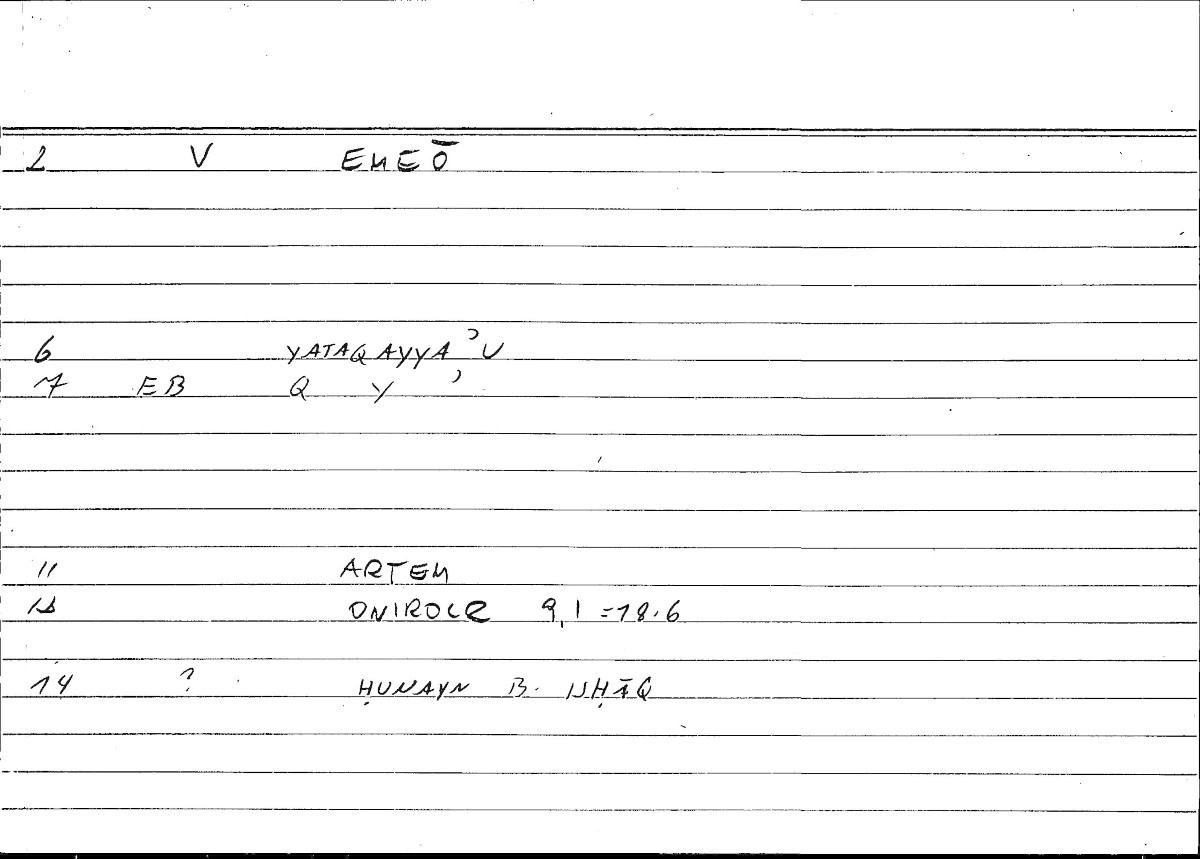 2 V EMEŌ
6 YATAQAYYAʾU
7 EB Q Y ʾ
11 ARTEM
12 ONIROCR 9,1 =18.6
14 ? ḤUNAYN B. ISḤĀQ